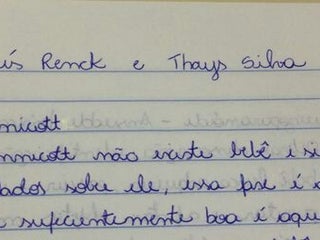 ís Renck e Thays Silva
nnicott
nnicott não existe bebê i si
ados sobre ele, essa fase é
suficientemente boa é aque